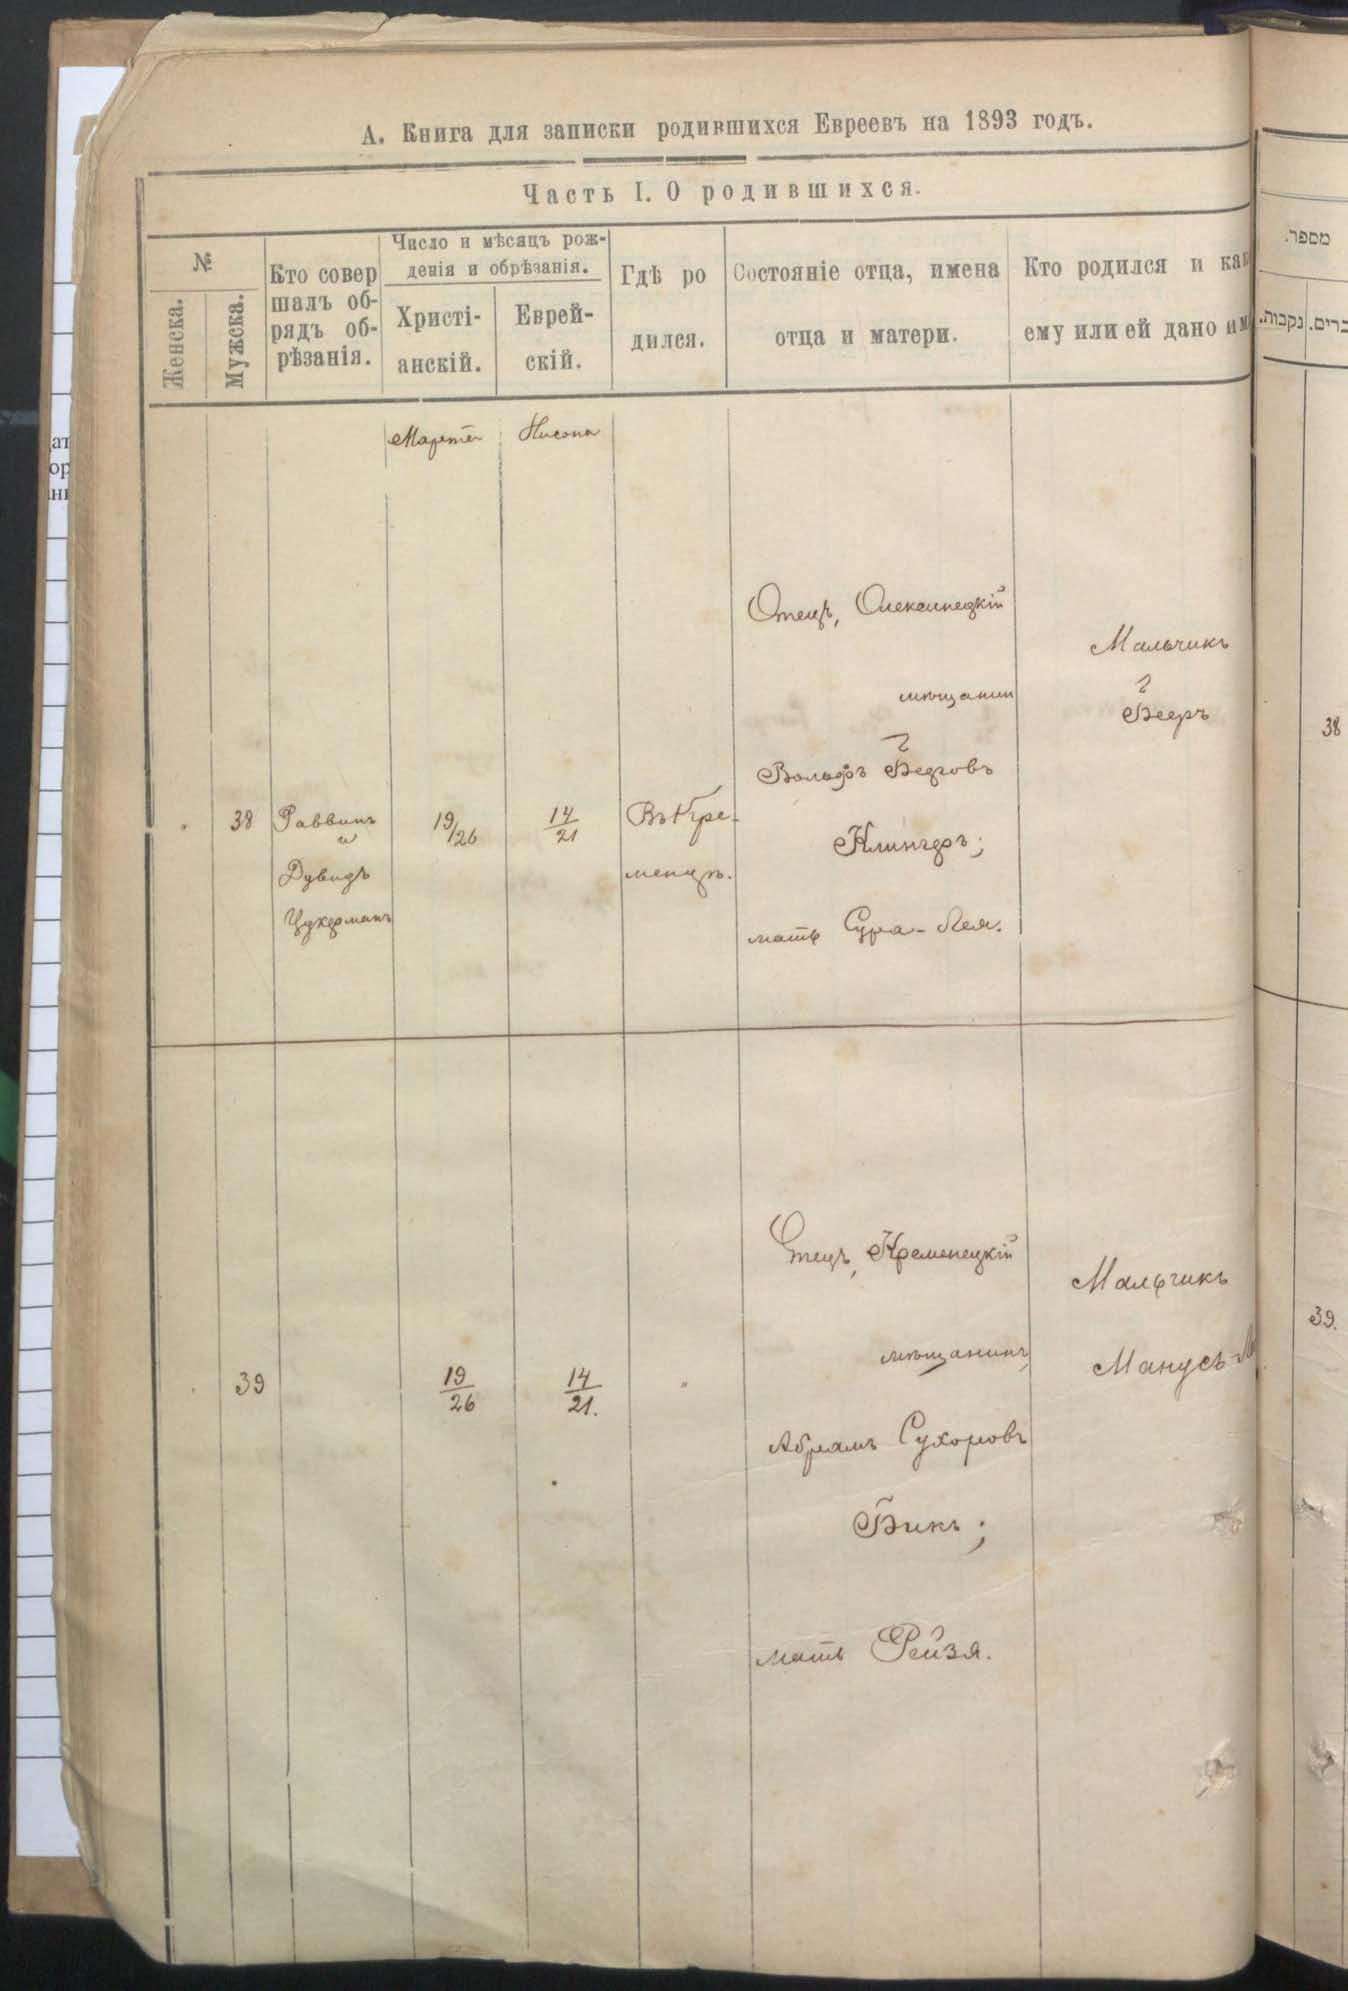 А. Книга для записки родившихся Евреевъ на 1893 годъ.
Часть I. О родившихся.
№
Женска.
Мужска.
Кто совер
шалъ об-
рядъ об-
рѣзанія.
Число и мѣсяцъ рож-
денія и обрѣзанія.
Христі-
анскій.
Еврей-
скій.
Гдѣ ро
дился.
Состояніе отца, имена
отца и матери.
Кто родился и как
ему или ей дано им
Марта
Нисона
38
Раввинъ
и
Дувидъ
Цукерманъ
19/26
14/21
Въ Кре-
менцѣ.
Отецъ, Олексинецкій
мѣщанин
Вольфъ Беровъ
Клингеръ;
мать Сура-Лея.
Мальчикъ
Бееръ
39
19/26
14/21.
"
Отецъ, Кременецкій
мѣщанинъ
Абрамъ Сухоровъ
Бикъ;
мать Рейзя.
Мальчикъ
Манусъ-
מספר.
נקבות.
ברים.
38
39.